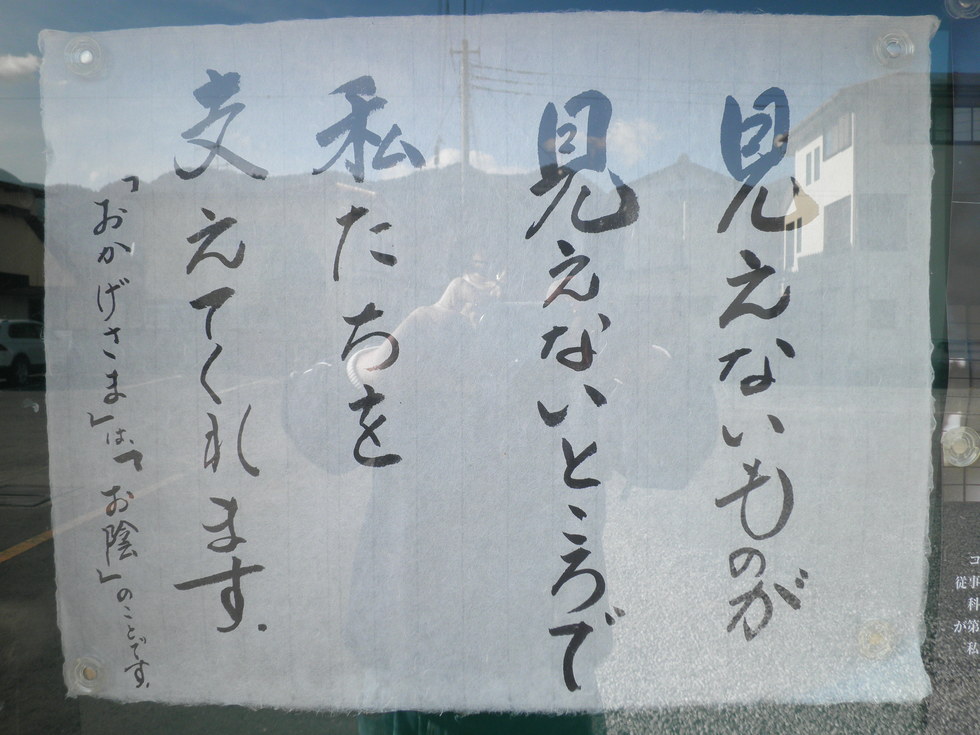 見えないものが
見えないところで
私たちを
支えてくれます.
「おかげさま」は、「お陰」のことです.
コ
従事
科
が第
私